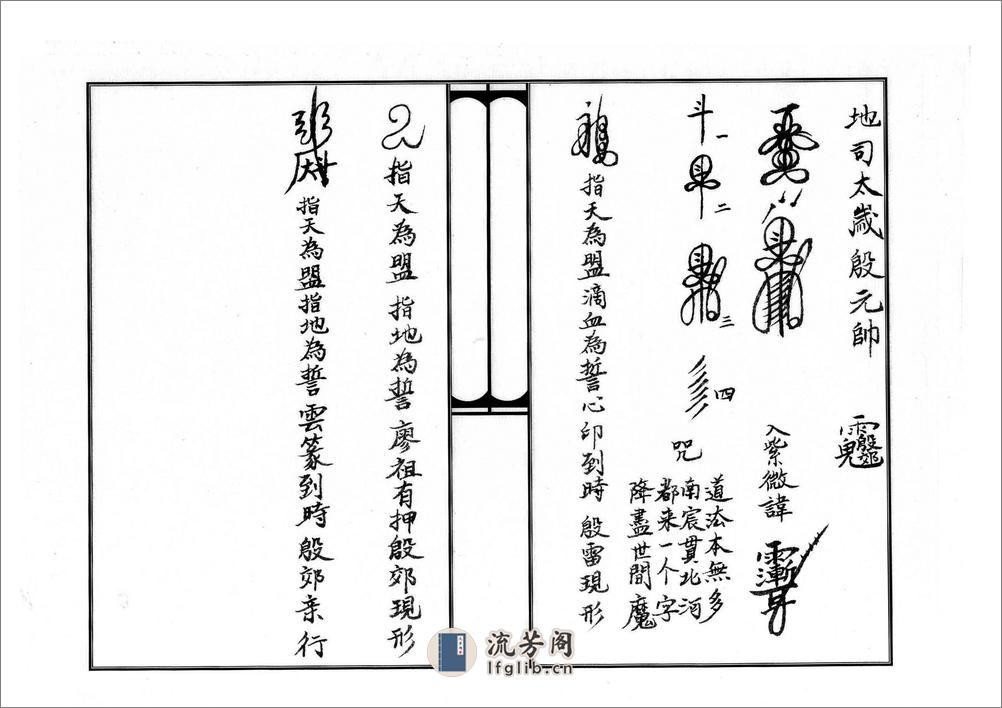 地司太歲殷元帥
入紫微諱
斗 一
二
三
四
咒
道法本無多
南宸貫北河
都来一个字
降盡世間魔
指天為盟滴血為誓心印到時 殷雷現形
指天為盟 指地為誓 廖祖有押殷郊現形
指天為盟指地為誓 雲篆到時 殷郊亲行
流芳阁
lfglib.cn